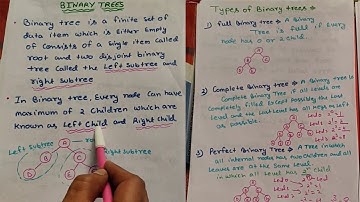 BINARY TREES
• Binary tree is a finite set of
data item which is either Empty
or Consists of a Single item called
root and two disjoint binary
tree Called the Left Subtree and
right Subtree
• In Binary tree, Every node Can have
maximum of 2 Children which are
Known as Left Child and Right Child
Left Subtree
A
root
Right Subtree
B
C
Types of Binary trees →
1) Full Binary tree → A Binary
Tree is full if Every
node has 0 or 2 child.
2) Complete Binary tree → A Complete
Binary tree if all Levels are
Completely filled Except possibly the Last
Level and the Last level has all keys as left
as possible.
3) Perfect Binary Tree → A Binary tree
all internal nodes has two Children and all
Leaves are at the Same level.
in which all level has 2ⁿ child